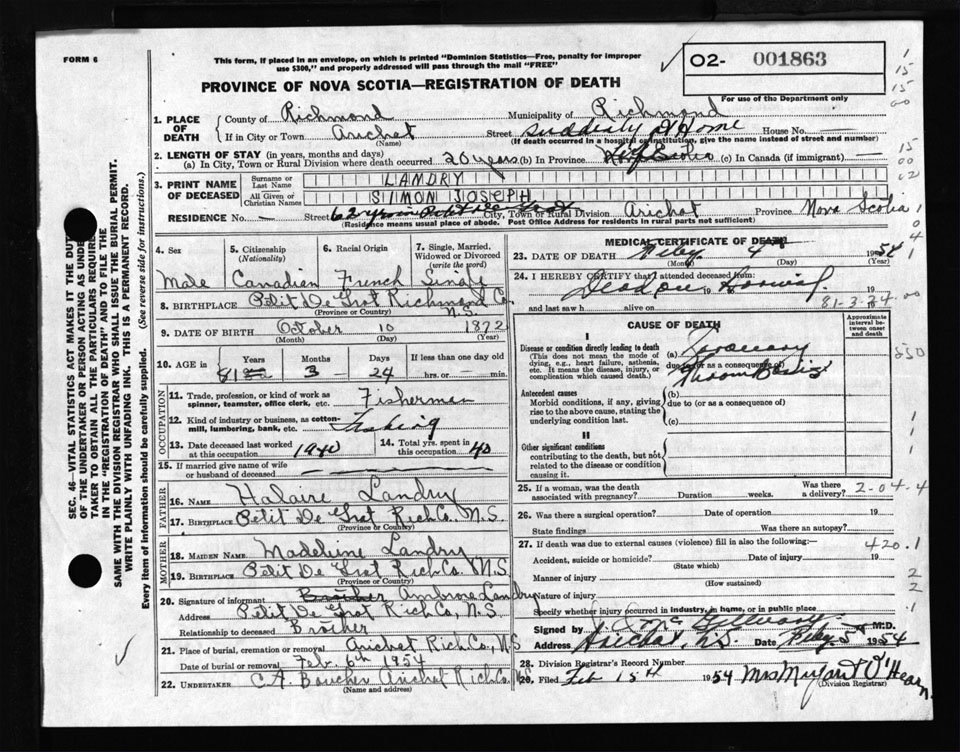 FORM 6
This form, if placed in an envelope, on which is printed "Dominion Statistics—Free, penalty for improper
use $300," and properly addressed will pass through the mail "FREE"
02- 001863
For use of the Department only
PROVINCE OF NOVA SCOTIA—REGISTRATION OF DEATH
1. PLACE OF DEATH County of Richmond Municipality of Richmond
If in City or Town Arichat (Name) Street Suddenly at Home House No.—
(If death occurred in a hospital or institution, give the name instead of street and number)
2. LENGTH OF STAY (in years, months and days)
(a) In City, Town or Rural Division where death occurred 20 years (b) In Province (c) In Canada (if immigrant) —
3. PRINT NAME OF DECEASED Surname or Last Name LANDRY
All Given or Christian Names SIMON JOSEPH
RESIDENCE No. — Street City, Town or Rural Division Arichat Province Nova Scotia
(Residence means usual place of abode. Post Office Address for residents in rural parts not sufficient)
4. Sex Male
5. Citizenship (Nationality) Canadian
6. Racial Origin French
7. Single, Married, Widowed or Divorced (write the word) Single
8. BIRTHPLACE Petit De Grat Richmond Co. N.S.
(Province or Country)
9. DATE OF BIRTH October 10 1872
(Month) (Day) (Year)
10. AGE in Years Months Days If less than one day old
81 3 24 hrs. or — min.
OCCUPATION
11. Trade, profession, or kind of work as spinner, teamster, office clerk, etc. Fisherman
12. Kind of industry or business, as cotton-mill, lumbering, bank, etc. Fishing
13. Date deceased last worked at this occupation 1940
14. Total yrs. spent in this occupation 40
15. If married give name of wife or husband of deceased
FATHER
16. NAME Halaire Landry
17. BIRTHPLACE Petit De Grat Rich Co., N.S.
(Province or Country)
MOTHER
18. MAIDEN NAME Madeleine Landry
19. BIRTHPLACE Petit De Grat Rich Co. N.S.
(Province or Country)
20. Signature of informant Brother Ambrose Landry
Address Petit De Grat Rich Co, N.S.
Relationship to deceased Brother
21. Place of burial, cremation or removal Arichat Rich Co, N.S
Date of burial or removal Feb. 6th 1954
22. UNDERTAKER C.A. Boucher Arichat Rich Co. N.S.
(Name and address)
MEDICAL CERTIFICATE OF DEATH
23. DATE OF DEATH Feby. 4th 1954
(Month) (Day) (Year)
24. I HEREBY CERTIFY that I attended deceased from:
Dead on 19 to 19
and last saw h alive on 81-3-24 19
CAUSE OF DEATH
Approximate interval between onset and death
I
Disease or condition directly leading to death (a) Coronary
(This does not mean the mode of dying, e.g., heart failure, asthenia, etc. It means the disease, injury, or complication which caused death.)
due to (or as a consequence of) Thrombosis
Antecedent causes
Morbid conditions, if any, giving rise to the above cause, stating the underlying condition last.
(b)
due to (or as a consequence of)
(c)
II
Other significant conditions
contributing to the death, but not related to the disease or condition causing it.
25. If a woman, was the death associated with pregnancy? Duration weeks. Was there a delivery? 2-04-4
26. Was there a surgical operation? Date of operation 19
State findings Was there an autopsy?
27. If death was due to external causes (violence) fill in also the following:— 420.1
Accident, suicide or homicide? Date of injury 19
(State which)
Manner of injury
(How sustained)
Nature of injury
Specify whether injury occurred in industry, in home, or in public place
Signed by M.D.
Arichat, N.S. Date Feby. 5th 1954
28. Division Registrar's Record Number
29. Filed Feb 15th 1954 Mrs Margaret O'Hearn
(Division Registrar)
SEC. 46—VITAL STATISTICS ACT MAKES IT THE DUTY
OF THE UNDERTAKER OR PERSON ACTING AS UNDER-
TAKER TO OBTAIN ALL THE PARTICULARS REQUIRED
IN THE "REGISTRATION OF DEATH" AND TO FILE THE
SAME WITH THE DIVISION REGISTRAR WHO SHALL ISSUE THE BURIAL PERMIT.
WRITE PLAINLY WITH UNFADING INK. THIS IS A PERMANENT RECORD.
Every item of information should be carefully supplied. (See reverse side for instructions.)